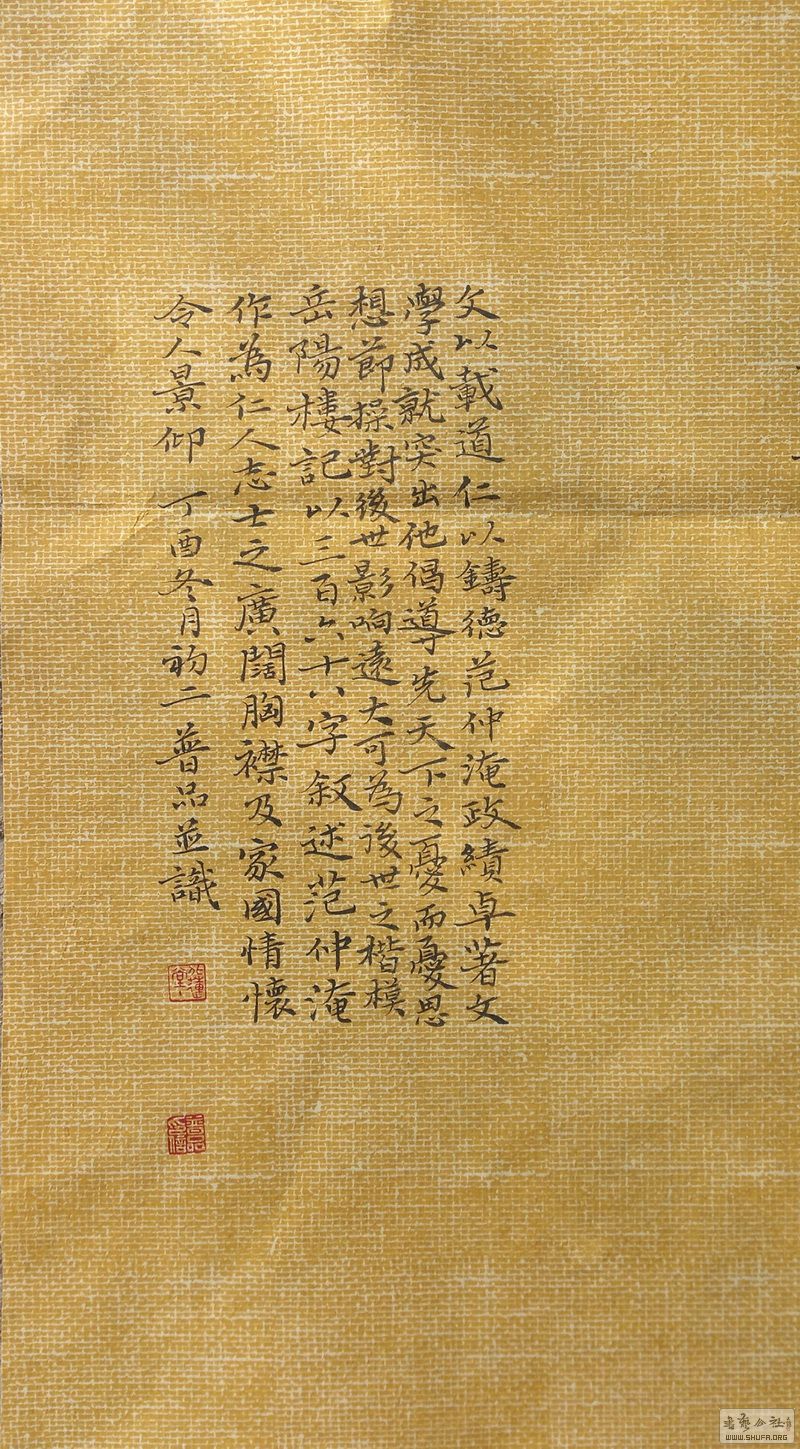 文以載道仁以鑄德范仲淹政績卓著文
學成就突出他倡導先天下之憂而憂思
想節操對後世影响遠大可為後世之楷模
岳陽樓記以三百六十八字叙述范仲淹
作為仁人志士之廣闊胸襟及家國情懷
令人景仰 丁酉冬月初二普品並識
WWW.SHUFA.ORG